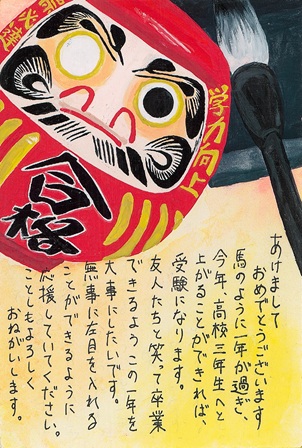 学力向上
合格
必達
あけまして
おめでとうございます
馬のように一年が過ぎ、
今年、高校三年生へと
上がることができれば、
受験になります。
友人たちと笑って卒業
できるようこの一年を
大事にしたいです。
無事に左目を入れる
ことができるように
応援していてください。
ことしもよろしく
おねがいします。